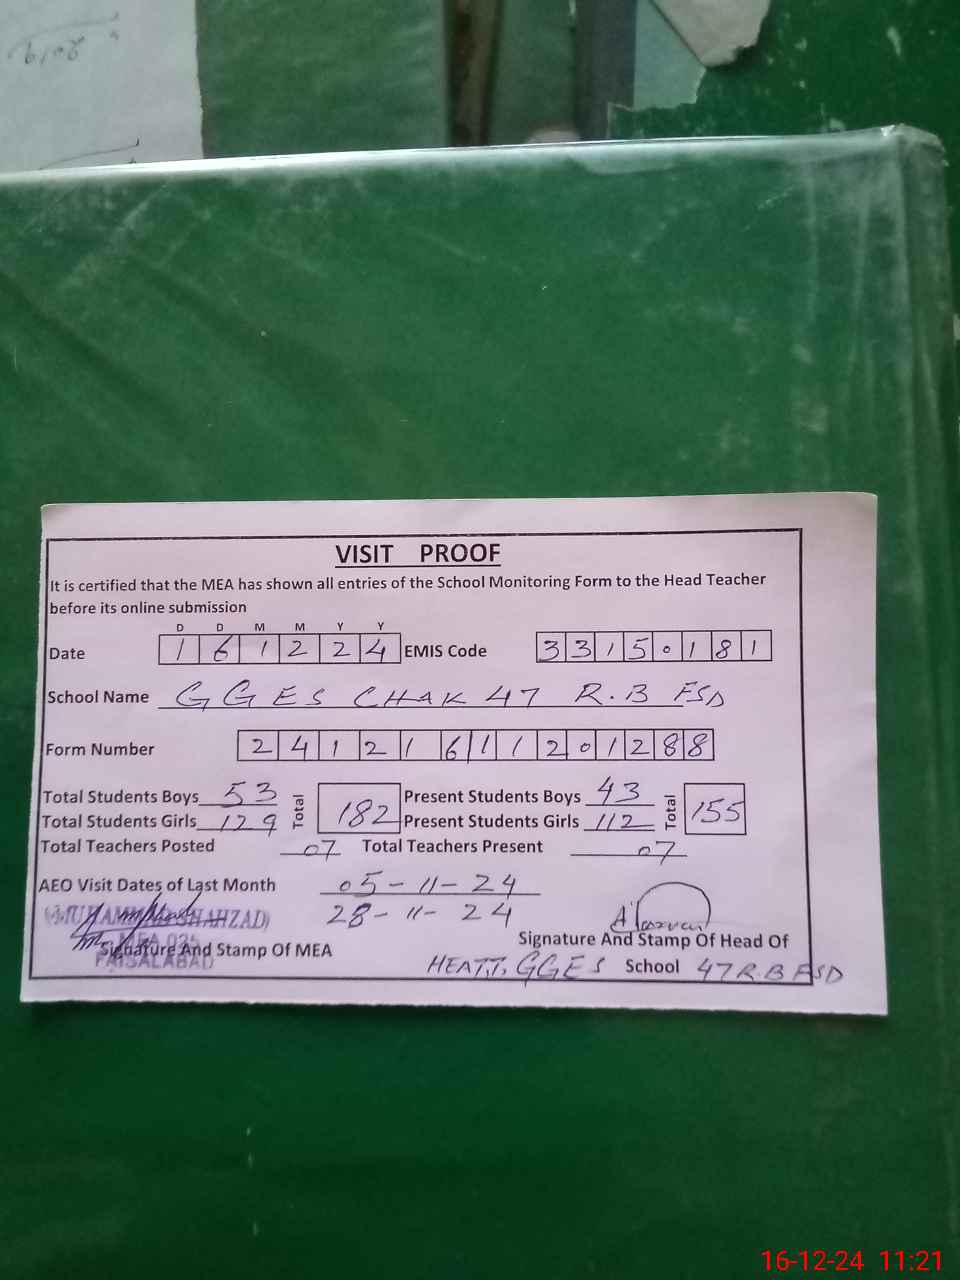 VISIT PROOF
It is certified that the MEA has shown all entries of the School Monitoring Form to the Head Teacher
before its online submission
D D M M Y Y
Date 1 6 1 2 2 4 EMIS Code 3 3 1 5 0 1 8 1
School Name GGES CHAK 47 R.B FSD
Form Number 2 4 1 2 1 6 1 1 2 0 1 2 8 8
Total Students Boys 53 Total 182 Present Students Boys 43 Total 155
Total Students Girls 129 Present Students Girls 112
Total Teachers Posted 07 Total Teachers Present 07
AEO Visit Dates of Last Month 05-11-24
28-11-24
(MUHAMMAD SHAHZAD)
MEA 035
FAISALABAD
Signature And Stamp Of MEA
Signature And Stamp Of Head Of
GGES School 47 R.B FSD
16-12-24 11:21